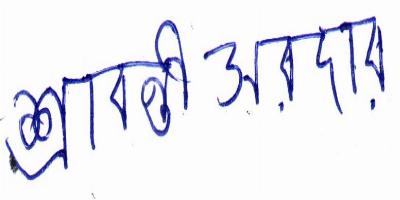 শ্রাবন্তী সরদার